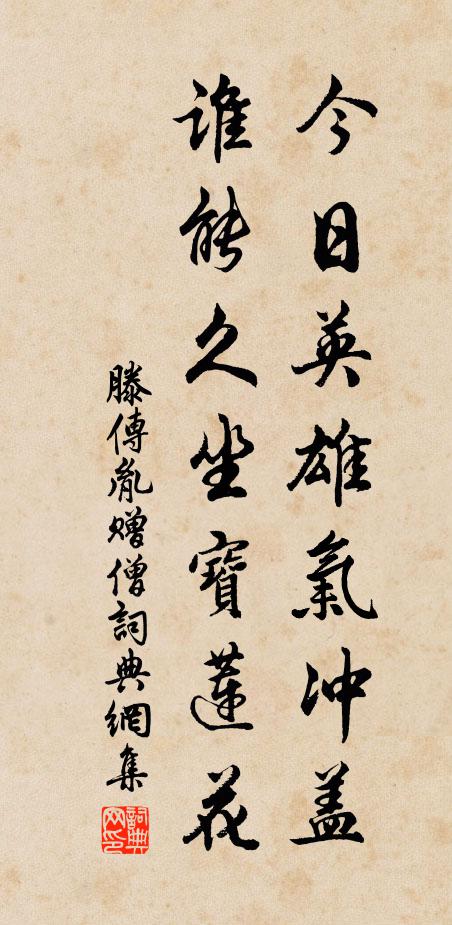 今日英雄氣冲蓋
誰能久坐寶蓮花
滕傳胤贈僧詞典網集
詞典網印